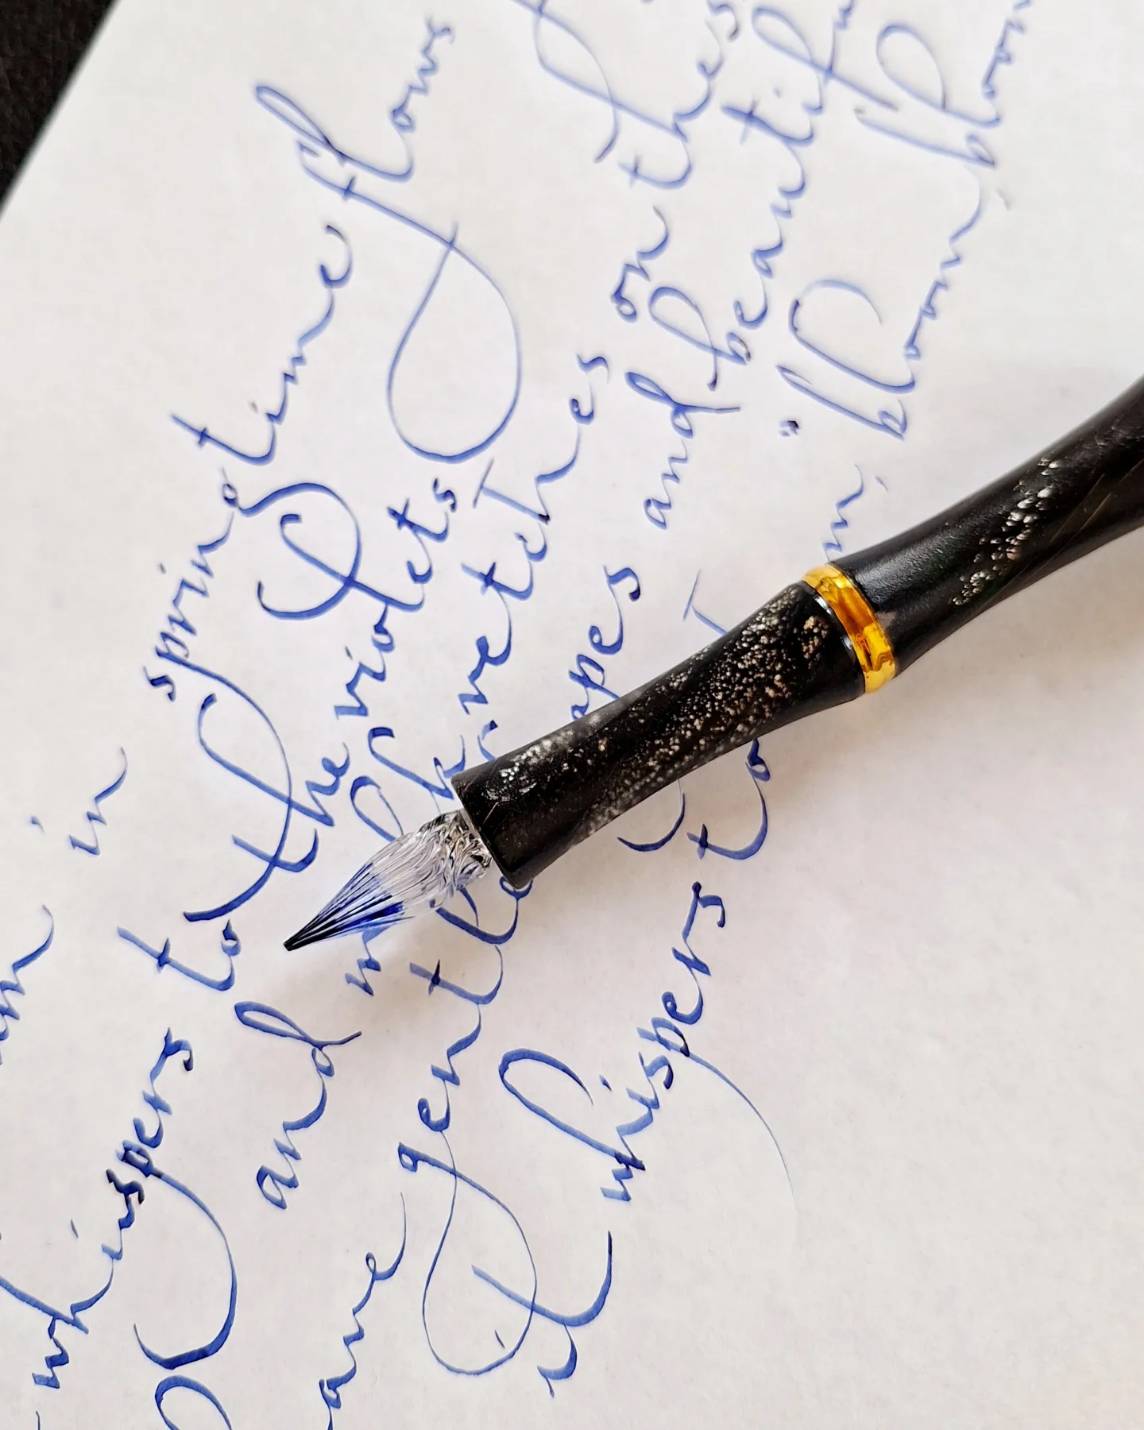 in springtime flows
whispers to the violets
and milk vetches on thes
ave gentle apes and beautifu
it whispers to m, "bloom, bloom